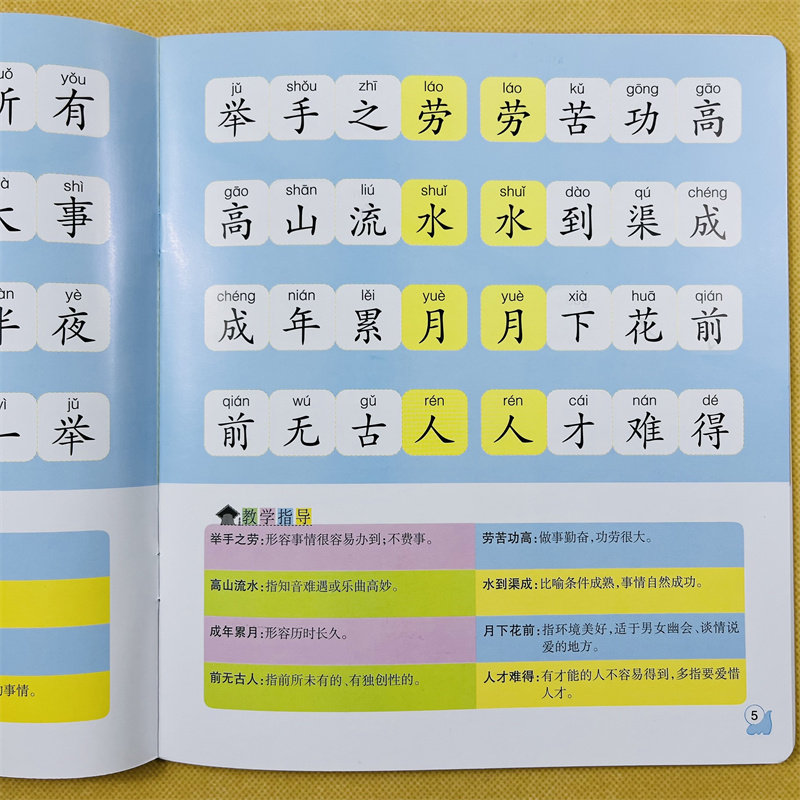 yǒu
有
shì
事
yè
夜
jǔ
一 举
的事情。
jǔ shǒu zhī láo láo kǔ gōng gāo
举 手 之 劳 劳 苦 功 高
gāo shān liú shuǐ shuǐ dào qú chéng
高 山 流 水 水 到 渠 成
chéng nián lěi yuè yuè xià huā qián
成 年 累 月 月 下 花 前
qián wú gǔ rén rén cái nán dé
前 无 古 人 人 才 难 得
教学指导
举手之劳:形容事情很容易办到;不费事。
劳苦功高:做事勤奋,功劳很大。
高山流水:指知音难遇或乐曲高妙。
水到渠成:比喻条件成熟,事情自然成功。
成年累月:形容历时长久。
月下花前:指环境美好,适于男女幽会、谈情说
爱的地方。
前无古人:指前所未有的、有独创性的。
人才难得:有才能的人不容易得到,多指要爱惜
人才。
5